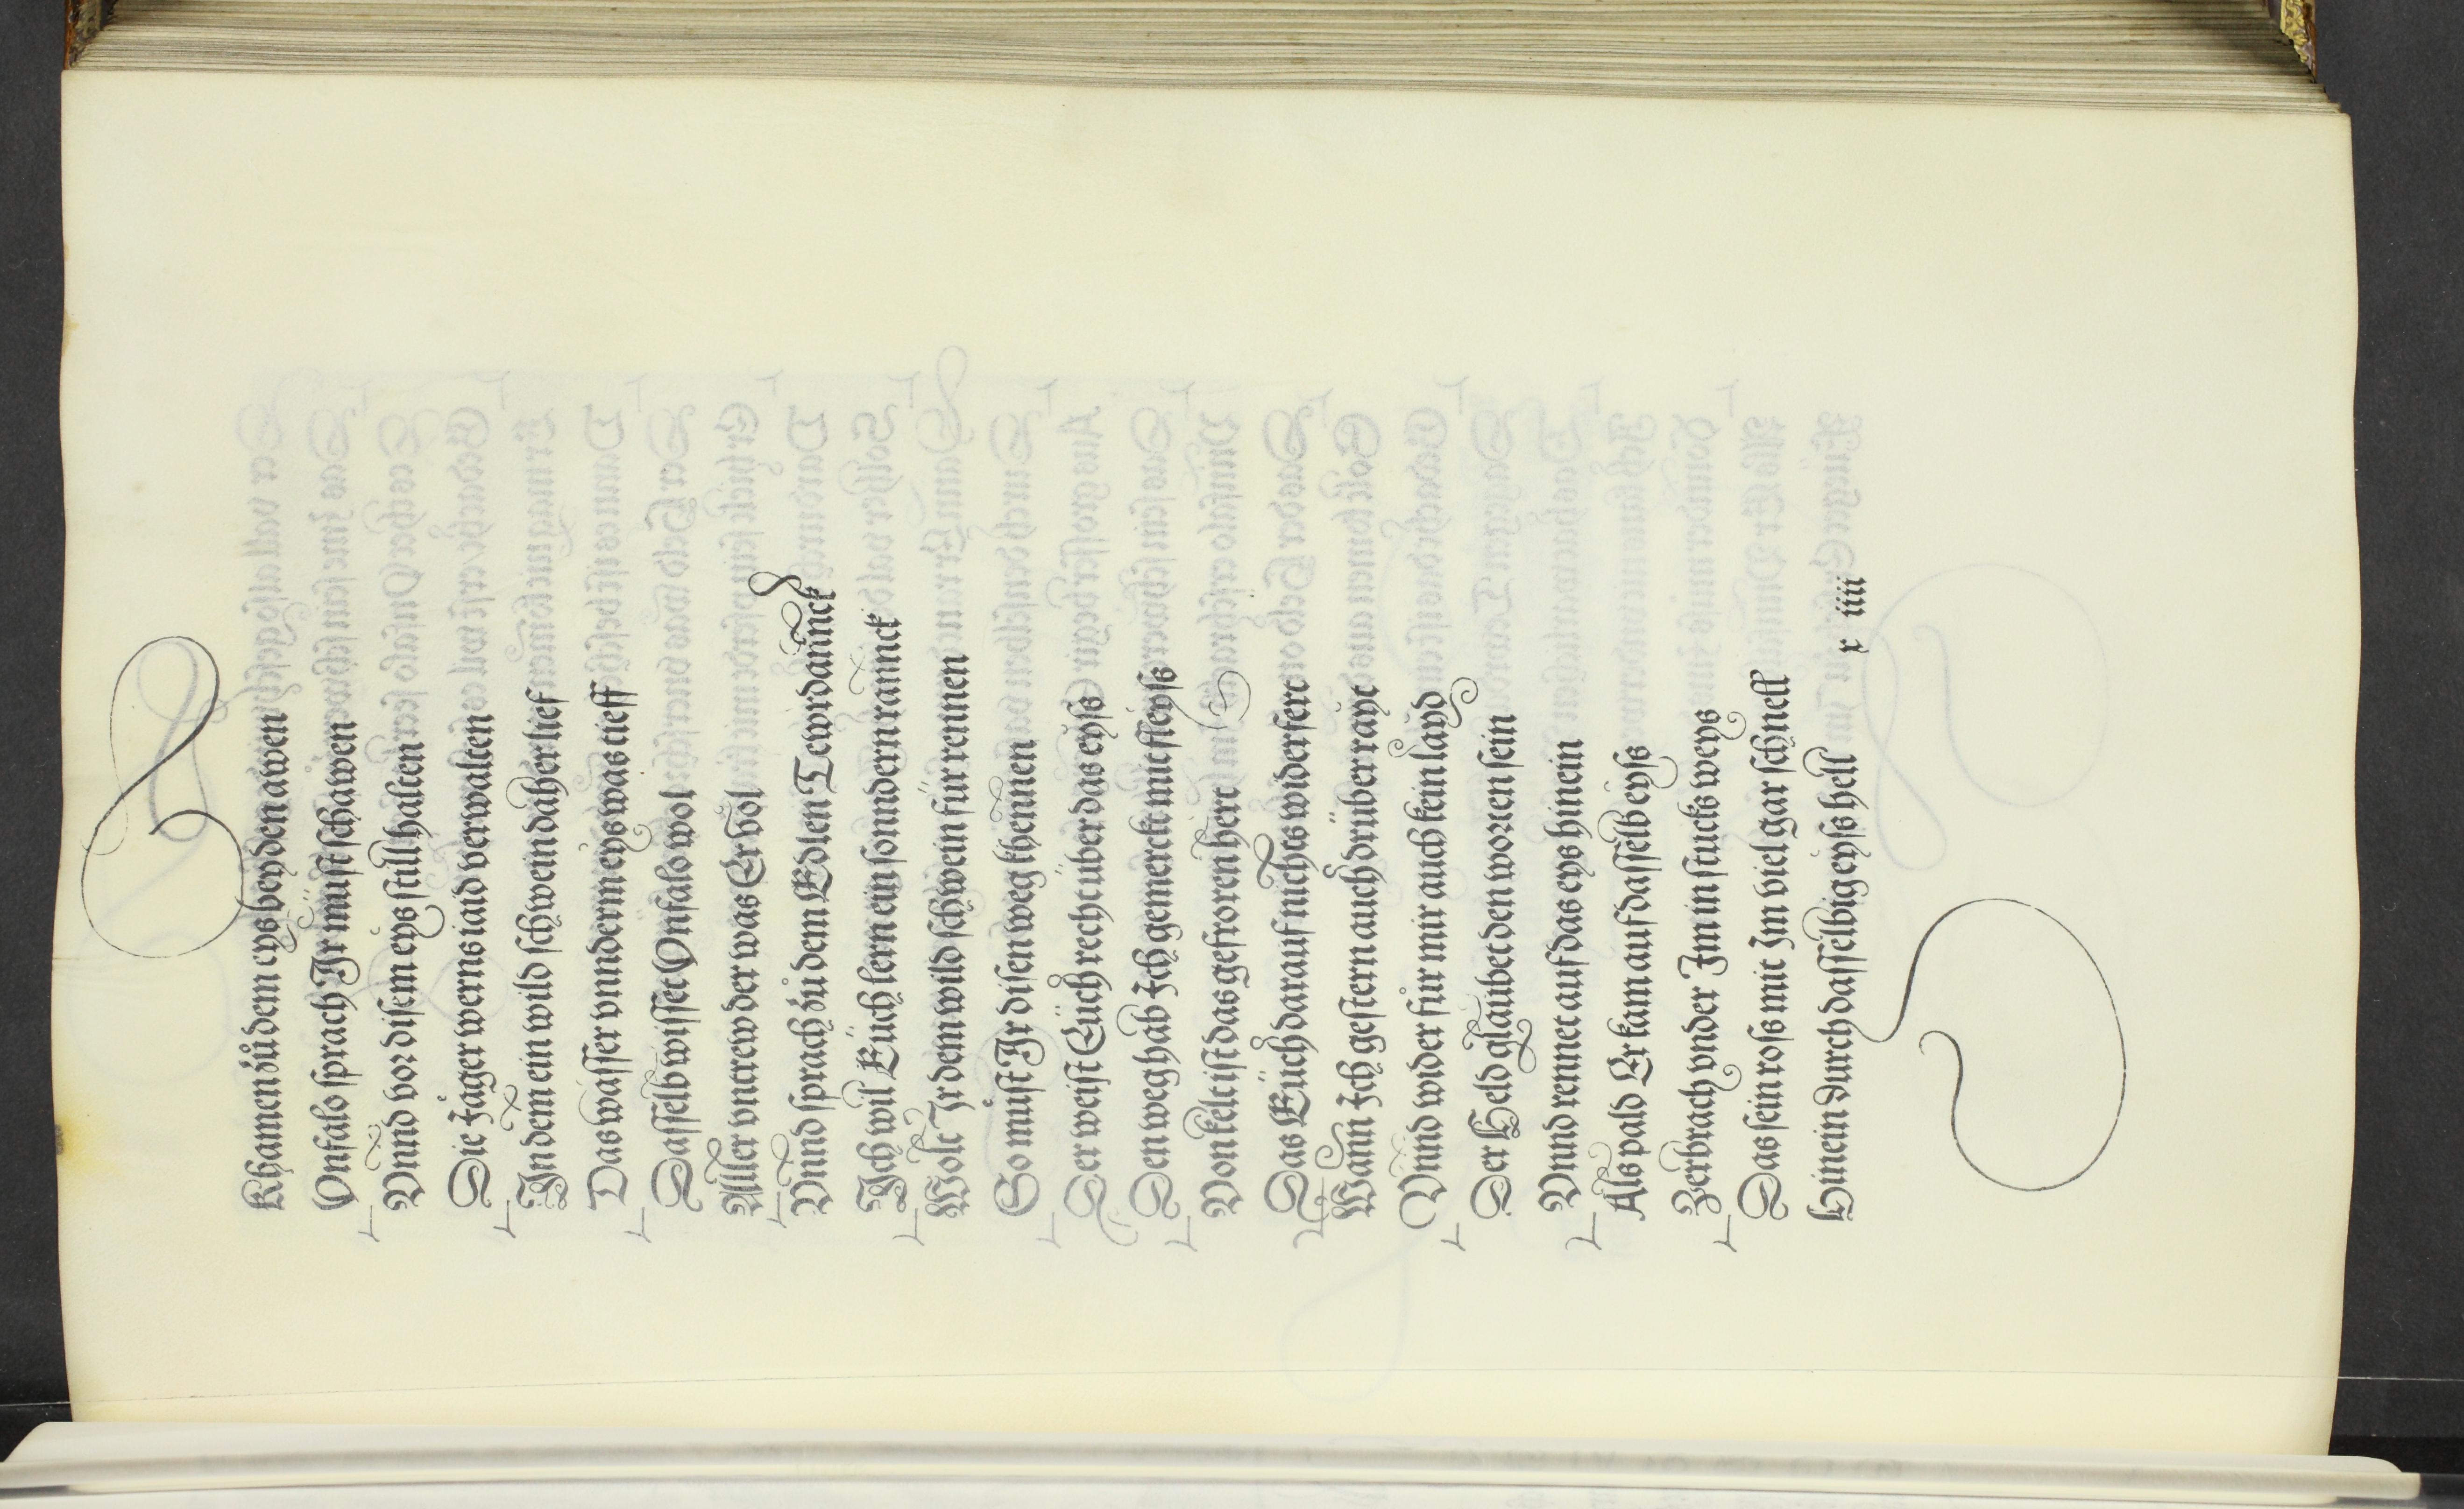 Khamen zů dem eys bey den awen
Vnfalo sprach Ir müst schawen
Vnnd vor disem eys still halten
Die Jäger werns iaid verwalten
In dem ein wild schwein daher lief
Das wasser vnnderm eys was tieff
Dasselb wisset Vnfalo wol
Aller vntrew der was Er vol
Vnnd sprach zů dem Edlen Tewrdannck
Ich wil Eüch lern ein sonndern rannck
Wolt Ir dem wild schwein für rennen
So můst Ir disen weg khennen
Der weist Eüch recht über das eyß
Den weg hab Ich gemerckt mit fleyß
Von kelt ist das gefroren hert
Das Eüch darauf nichts widerfert
Wann Ich gestern auch drüber rayt
Vnnd widerfůr mir auch kein layd
Der Held glaubet den worten sein
Vnnd rennet auf das eys hinein
Als pald Er kam auf dasselb eyß
Zerbrach vnder Im in stucks weys
Das sein roß mit Im viel gar schnell
Hinein durch dasselbig eyß hell
r iiii